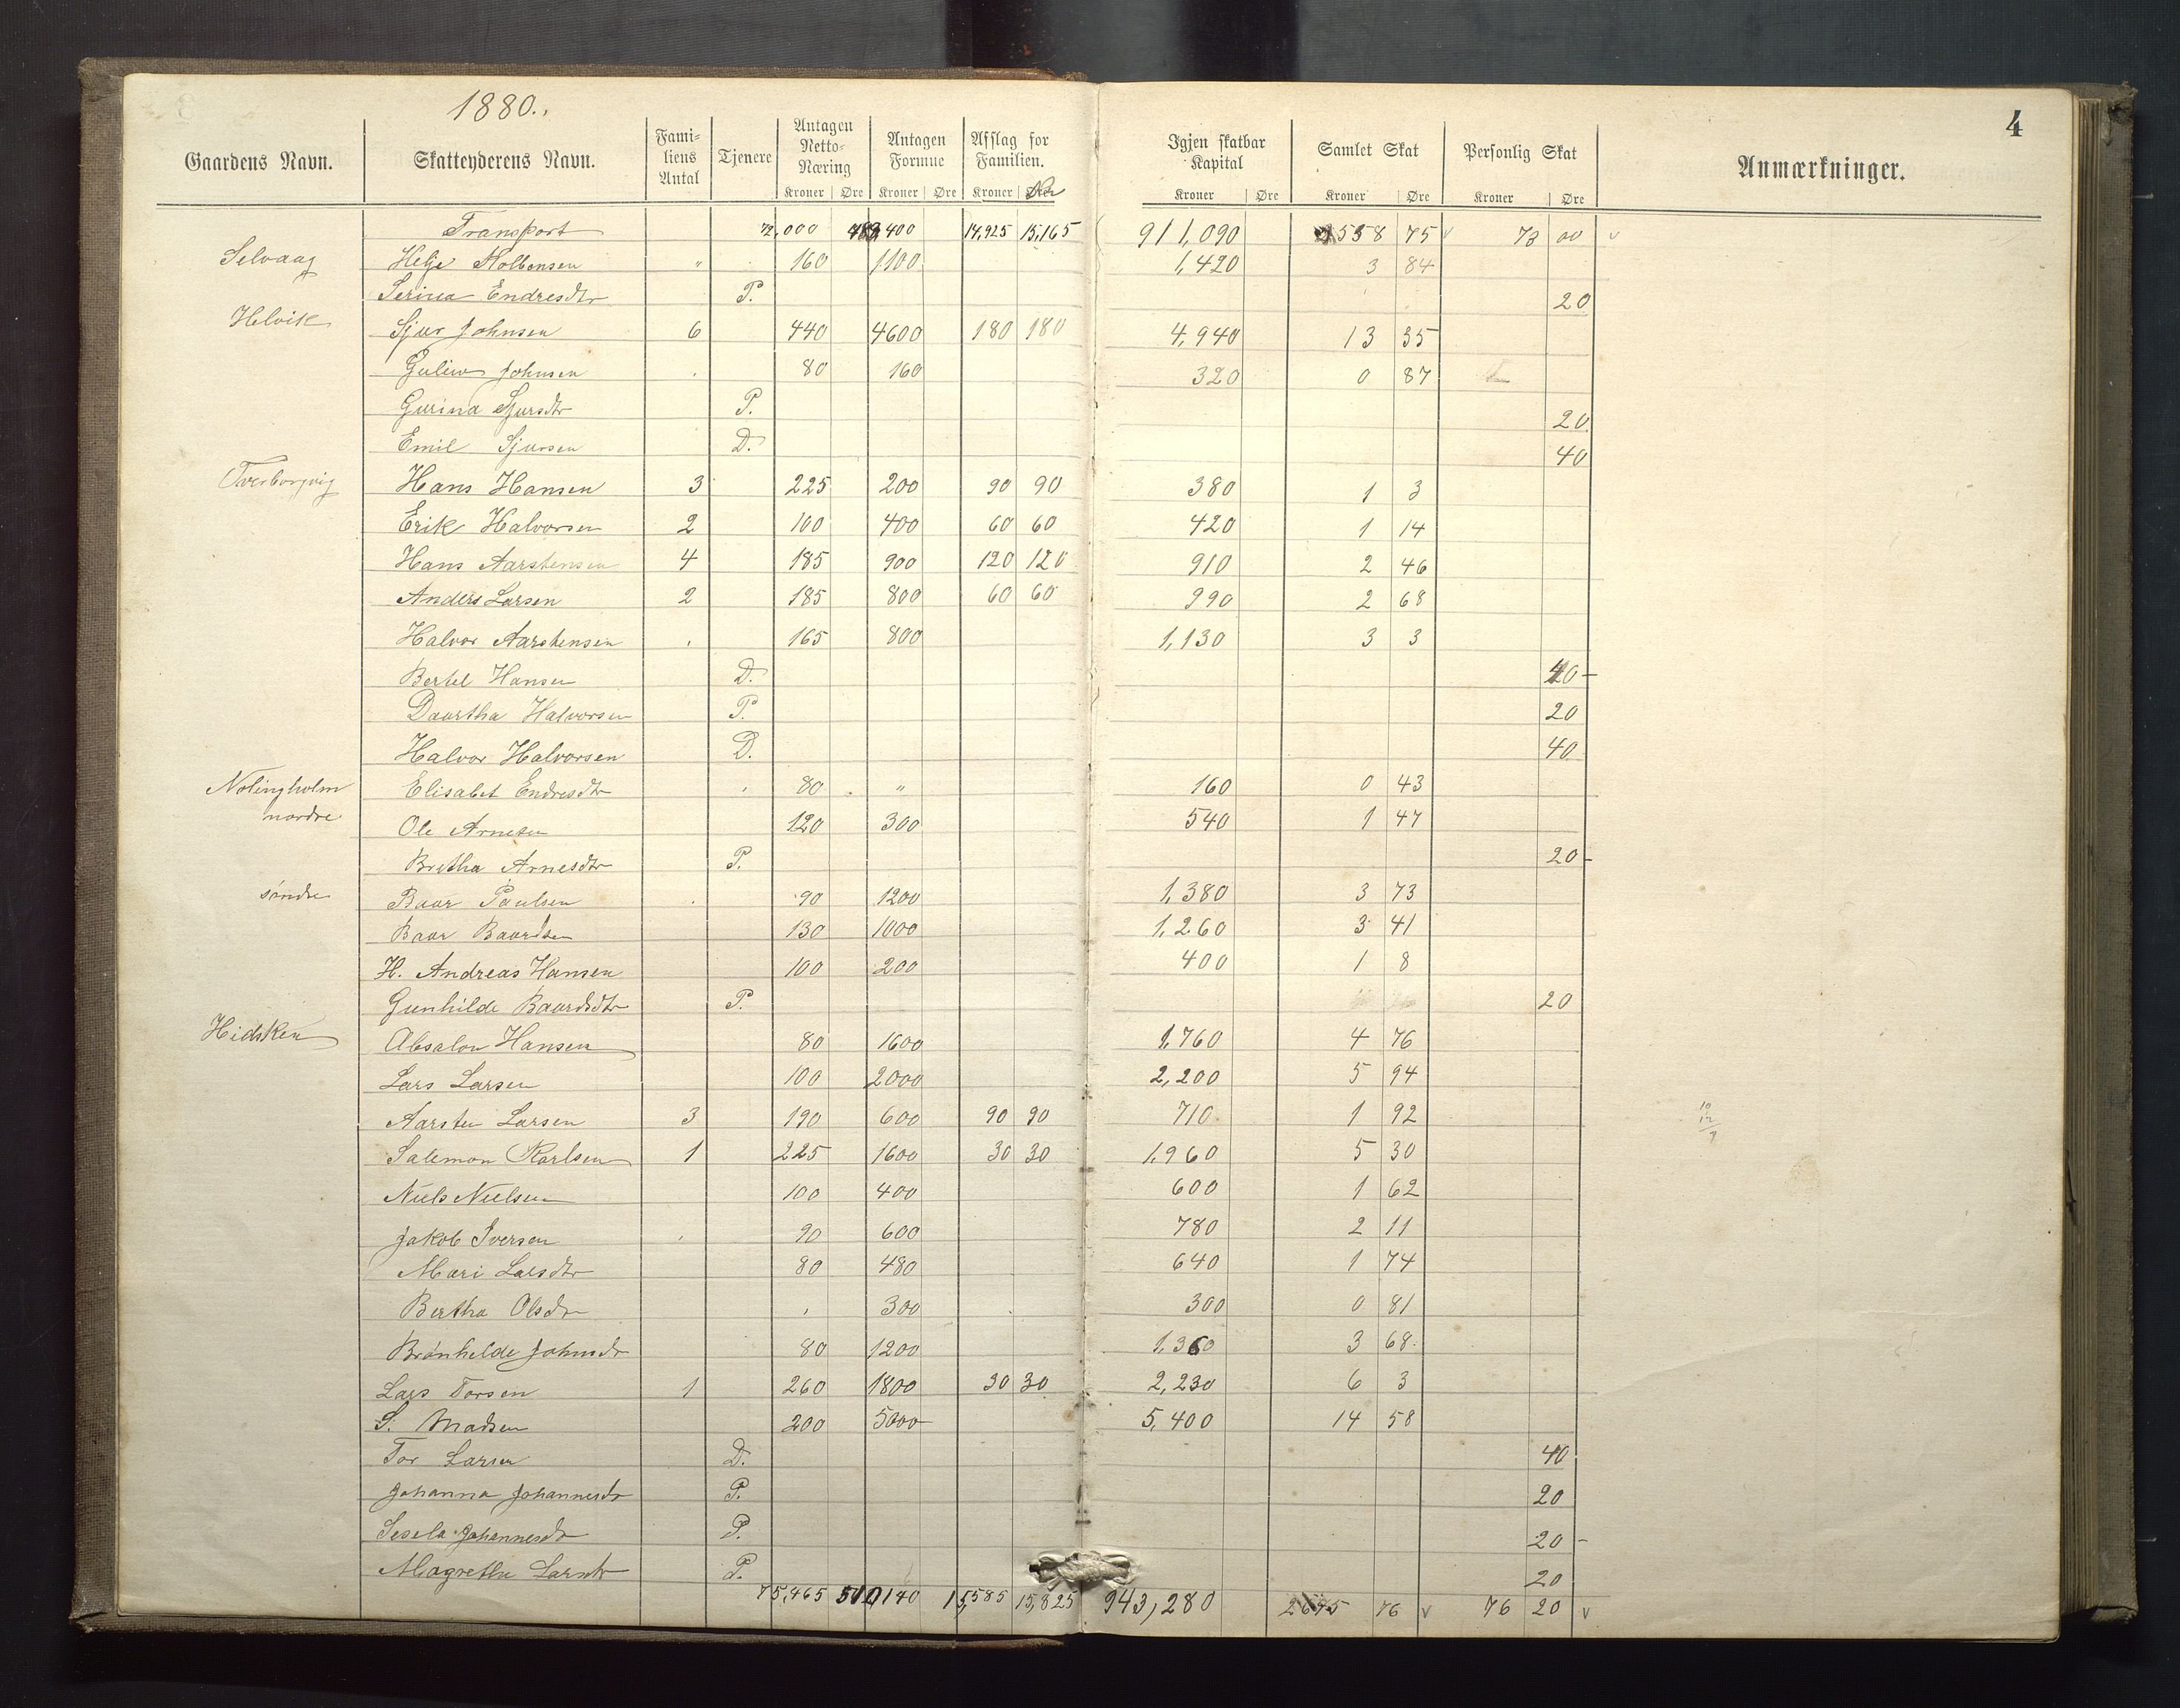 1880.
4
Gaardens Navn. Skatteyderens Navn. Fami-liens Antal Tjenere Antagen Netto-Næring Antagen Formue Afslag for Familien. Igjen skatbar Kapital Samlet Skat Personlig Skat Anmærkninger.
Kroner Øre Kroner Øre Kroner Kroner Øre Kroner Øre Kroner Øre
Transport 72,000 400 14,925 15,165 911,090 2558 75 v 73 00 v
Selvaag Helje Kolbensen " 160 1100 1,420 3 84
Serina Endresdtr P. 20
Helvik Sjur Johnsen 6 440 4600 180 180 4,940 13 35
Johnsen 80 160 320 0 87
Gurina Sjursdtr P. 20
Emil Sjursen D. 40
Tverborgvig Hans Hansen 3 225 200 90 90 380 1 3
Erik Halvorsen 2 100 400 60 60 420 1 14
Hans Aarstensen 4 185 900 120 120 910 2 46
Anders Larsen 2 185 800 60 60 990 2 68
Halvor Aarstensen 165 800 1,130 3 3
Bertel Hansen D. 40
Daartha Halvorsen P. 20
Halvor Halvorsen D. 40
Nolingholm Elisabet Endresdtr 80 " 160 0 43
nordre Ole Arnesen 120 300 540 1 47
Bretha Arnesdtr P. 20
søndre Baar Paulsen 90 1200 1,380 3 73
Baar Baardsen 130 1000 1,260 3 41
H. Andreas Hansen 100 200 400 1 8
Gunhilde Baardsdtr P. 20
Hidsken Absalon Hansen 80 1600 1,760 4 76
Lars Larsen 100 2000 2,200 5 94
Aarsten Larsen 3 190 600 90 90 710 1 92
Salemon Karlsen 1 225 1600 30 30 1,960 5 30
Niels Nielsen 100 400 600 1 62
Jakob Iversen 90 600 780 2 11
Mari Larsdtr 80 480 640 1 74
Bertha Olsdtr 300 300 0 81
Brønhelde Johnsdtr 80 1200 1,360 3 68
Lars Torsen 1 260 1800 30 30 2,230 6 3
S. Madsen 200 5000 5,400 14 58
Tor Larsen D. 40
Johanna Johannesdtr P. 20
Sesela Johannesdtr P. 20
Magretha Larsdtr P. 20
75,465 510,140 15,585 15,825 943,280 2645 76 v 76 20 v